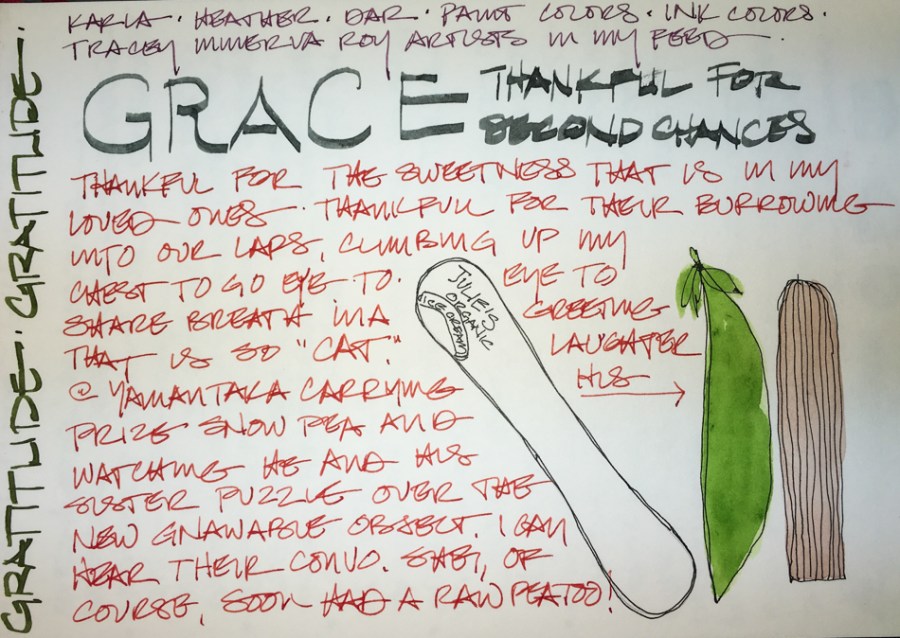 KARLA · HEATHER · DAR · PAINT COLORS · INK COLORS ·
TRACEY MINERVA ROY ARTISTS IN MY FEED ·
GRACE THANKFUL FOR
SECOND CHANCES
GRATITUDE · GRATITUDE
THANKFUL FOR THE SWEETNESS THAT IS IN MY
LOVED ONES · THANKFULL FOR THEIR BURROWING
INTO OUR LAPS, CLIMBING UP MY
CHEST TO GO EYE · TO · EYE TO
SHARE BREATH IN A GREETING
THAT IS SO "CAT." LAUGHTER
@ YAMANTAKA CARRYING HIS
PRIZE SNOW PEA AND
WATCHING HE AND HIS
SISTER PUZZLE OVER THE
NEW GNAWABLE OBJECT. I CAN
HEAR THEIR CONVO. SHEJ, OF
COURSE, SOON HAD A RAW PEA TOO!
JULIE'S
ORGANIC
ICE CREAM